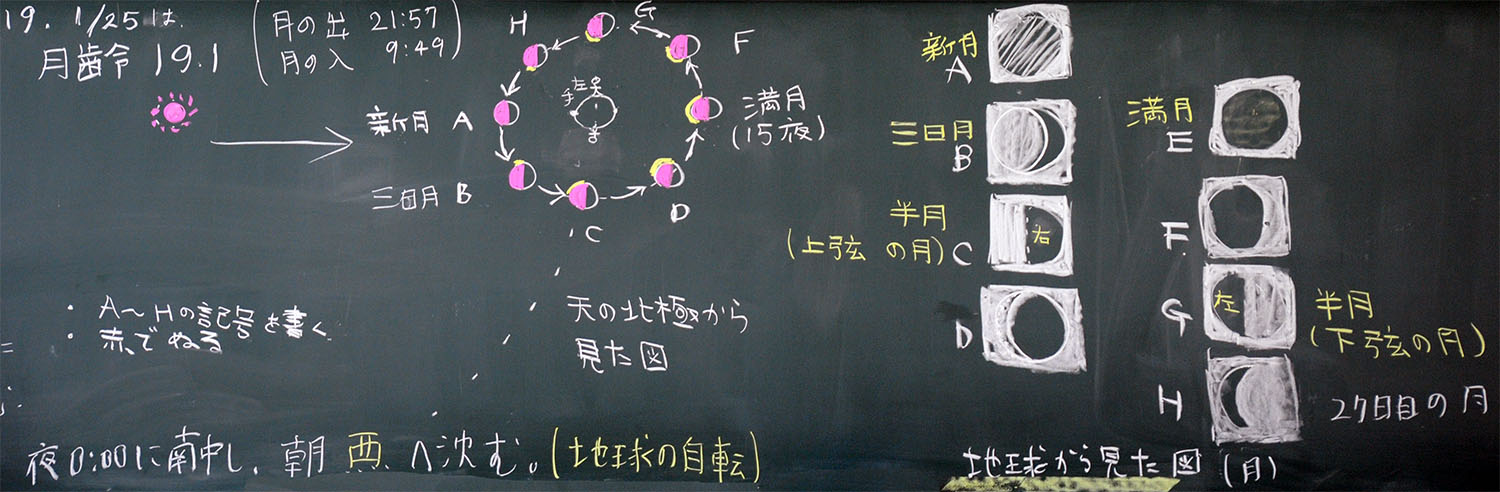 19. 1/25は、
月歯令 19.1
(月の出 21:57
月の入 9:49)
H
G
F
新月 A
満月
(15夜)
三日月 B
C
D
・A〜Hの記号を書く
・赤でぬる
天の北極から
見た図
夜0:00に南中し、朝 西へ沈む。(地球の自転)
新月
A
三日月
B
半月
(上弦の月) C
右
D
満月
E
F
G
左
半月
(下弦の月)
H
27日目の月
地球から見た図 (月)